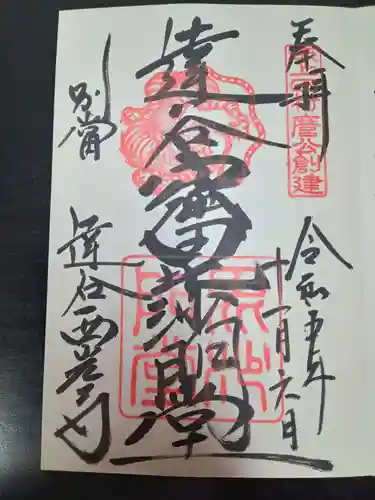 奉拝
麿公創建
令和五年
十一月六日
達谷窟毘沙門堂
別當
達谷西光寺